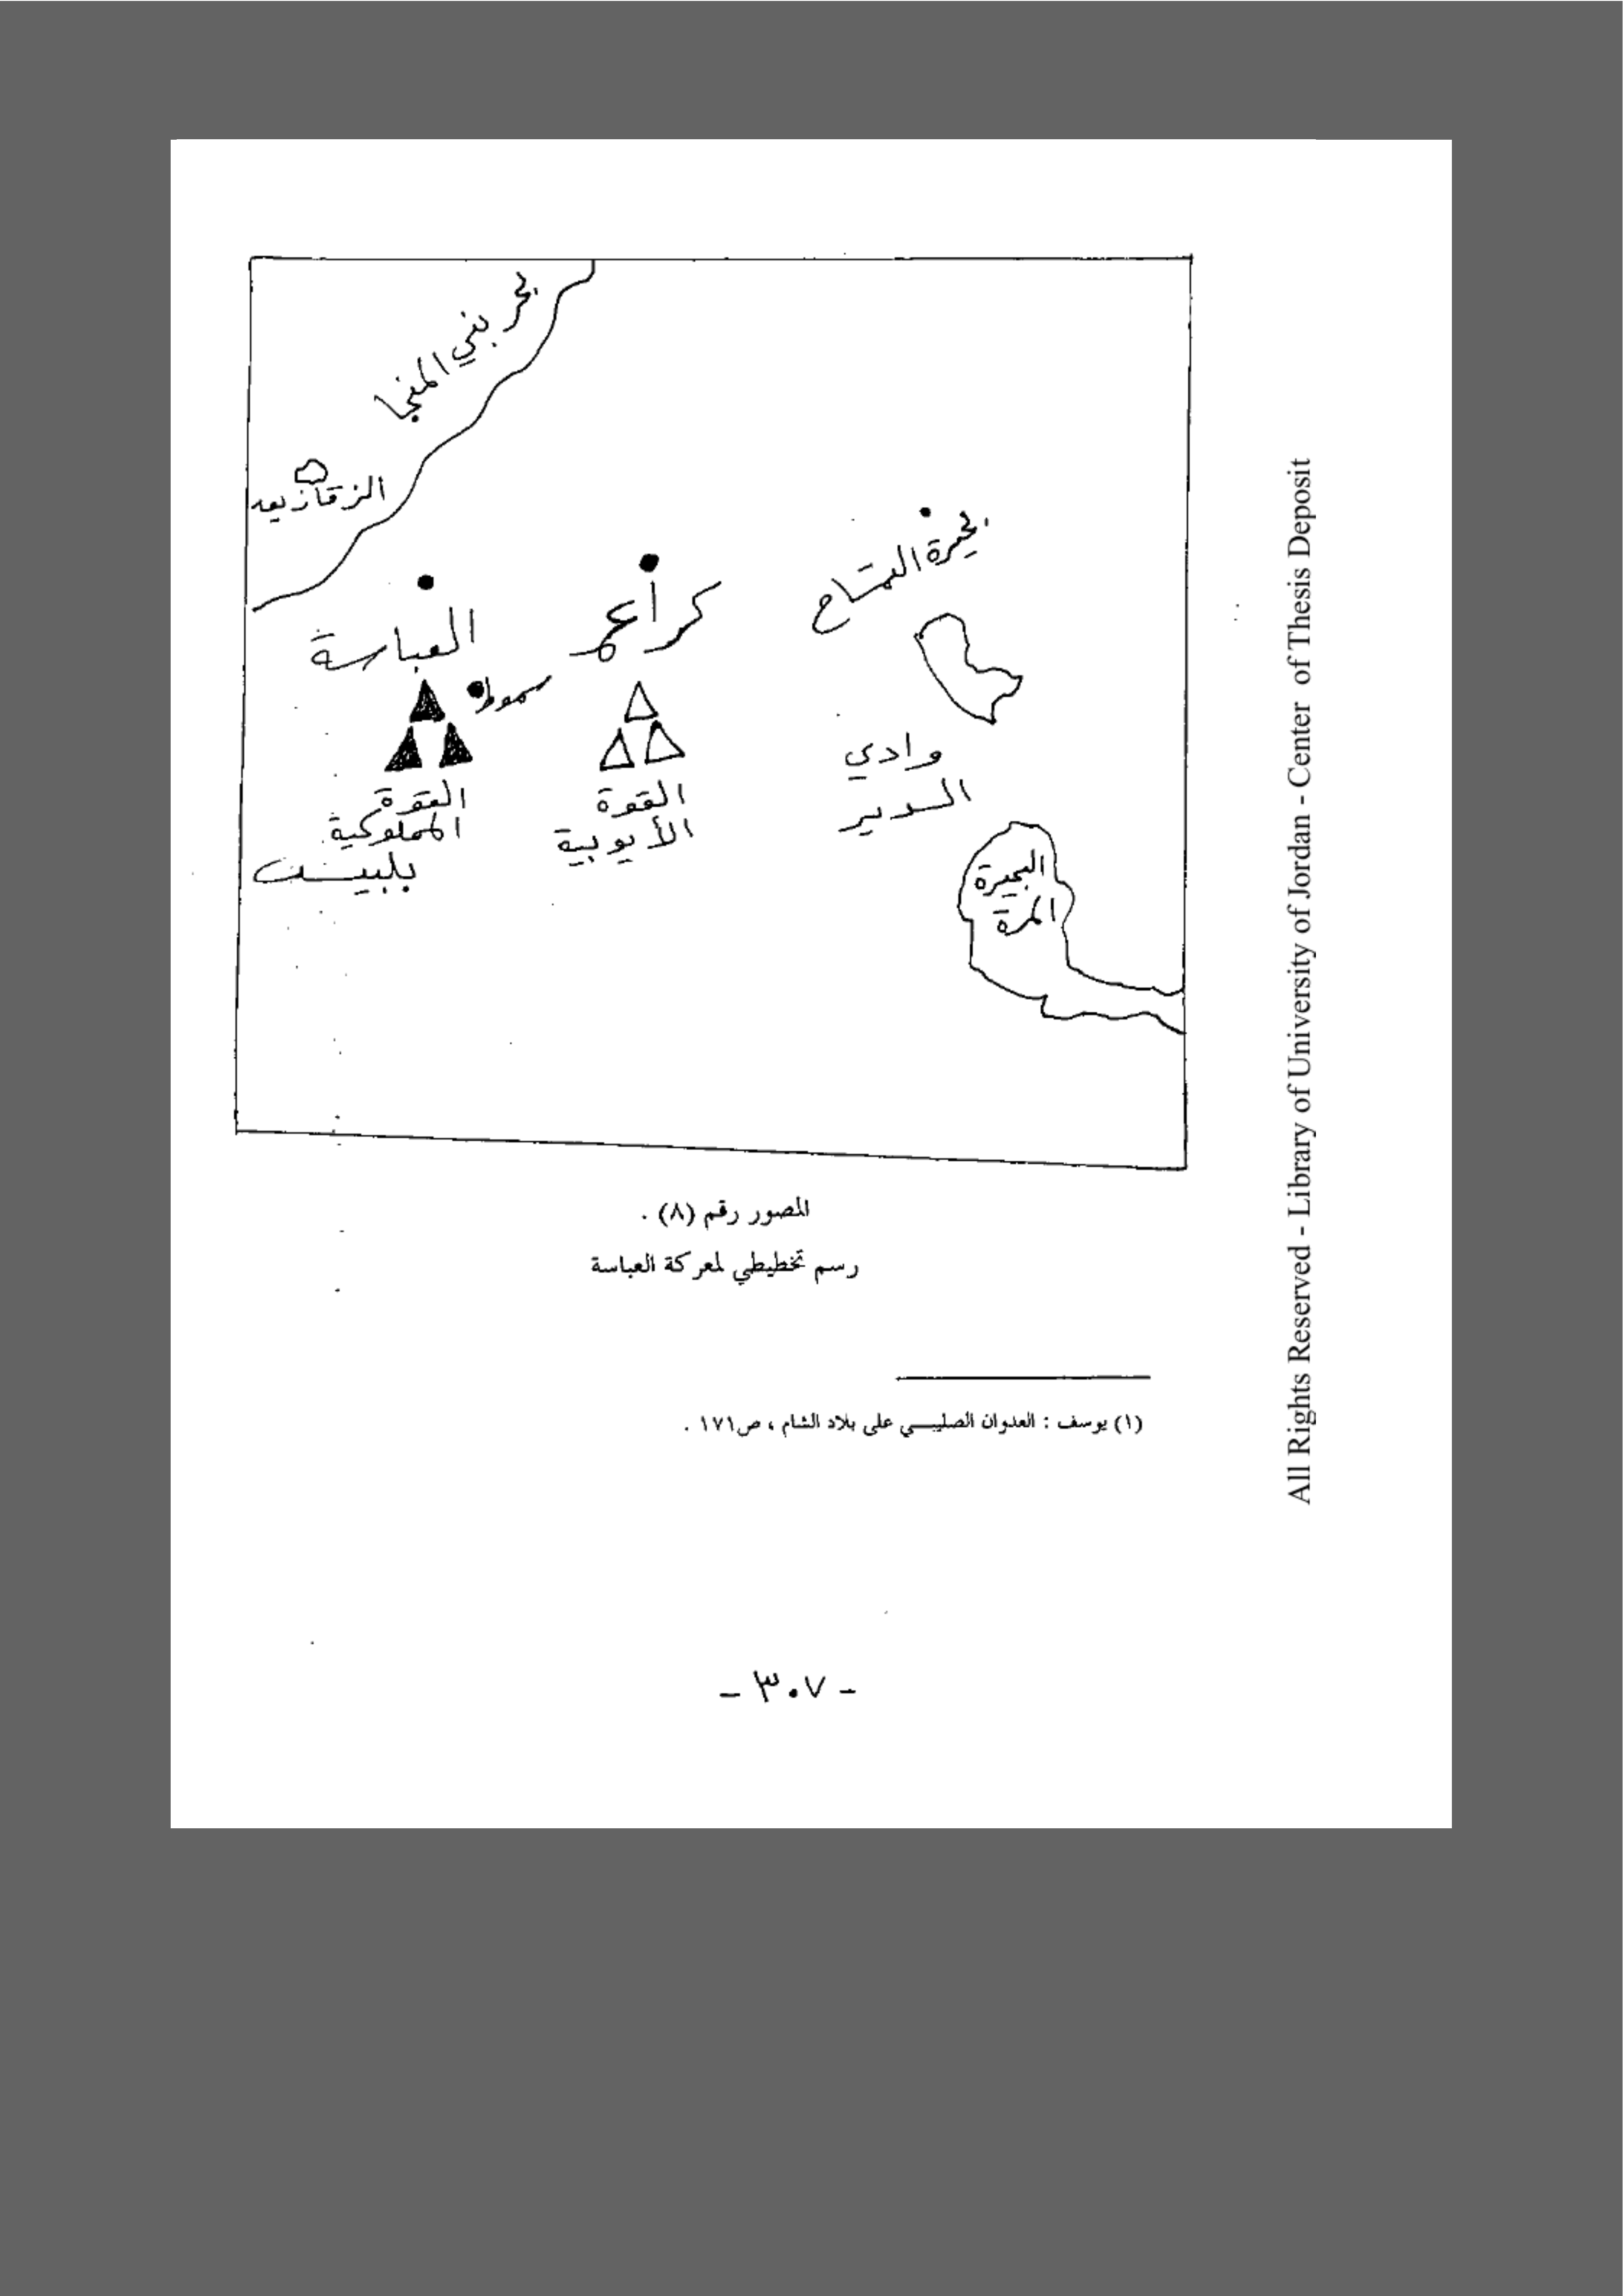 بحر بني المنجا
الزقازيق
بحيرة التمساح
العباسة
كراع
سموط
وادي
السدير
القوة
المملوكية
القوة
الأيوبية
بلبيس
البحيرة
المرة
المصور رقم (٨) .
رسم تخطيطي لمعركة العباسة
(١) يوسف : العدوان الصليبـي على بلاد الشام ، ص١٧١ .
- ٣٠٧ -
All Rights Reserved - Library of University of Jordan - Center of Thesis Deposit